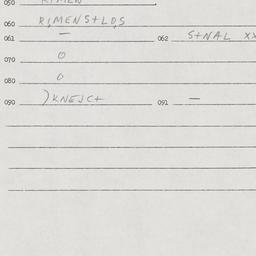 050 RIMEN
060 RIMENS+LD,S
061 — 062 S+NAL XX
070 0
080 0
090 )KNEJC+ 091 —